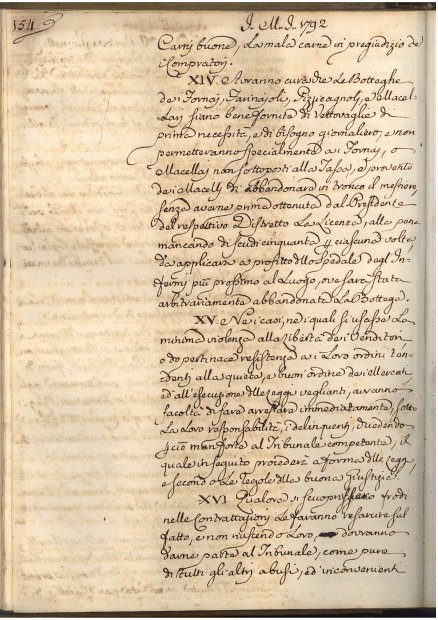 154
I. M. I. 1792
Carni buone, La mala carne in pregiudizio de
i Compratori.
XIV. Avranno cura die Le Botteghe
dei Fornaj, Farinajoli, Pizzicagnoli, e Macel-
Laj siano bene fornite di Vettovaglie di
prima necessità, e di bisogno giornaliero, e non
permetteranno specialmente ai Fornaj, o
Macellaj non sottoposti alla Tassa, o provento
dei Macelli di abbandonare in tronco il mestiere
senza averne prima ottenuta dal Presidente
del respettivo Distretto La Licenza, alla pena
mancando di scudi cinquanta p ciascuna volta
da applicarsi a profitto dllo Spedale degl' In-
fermi più prossimo al Luogo, ove sarà stata
arbitrariamente abbandonata La Bottega.
XV. Nei casi, nei quali si usasse La
minima violenza alla libertà dei Venditori
o do pertinace resistenza ai Loro ordini ten-
denti alla quiete, e buon ordine dei Mercati,
ed all'esecuzione dlle Leggi veglianti, avranno
facoltà di fare arrestare immediatamente, sotto
La Loro responsabilità, i delinquenti, chiedendo
p ciò man forte al Tribunale competente, il
quale in seguito procederà a forma dlle Leggi,
e secondo Le Regole dlla buona Giustizia.
XVI. Qualora si scuoprissero frodi
nelle Contrattazioni Le faranno resarcire sul
fatto, e non riuscendo Loro, dovranno
darne parte al Tribunale, come pure
di tutti gli altri abusi, ed inconvenienti